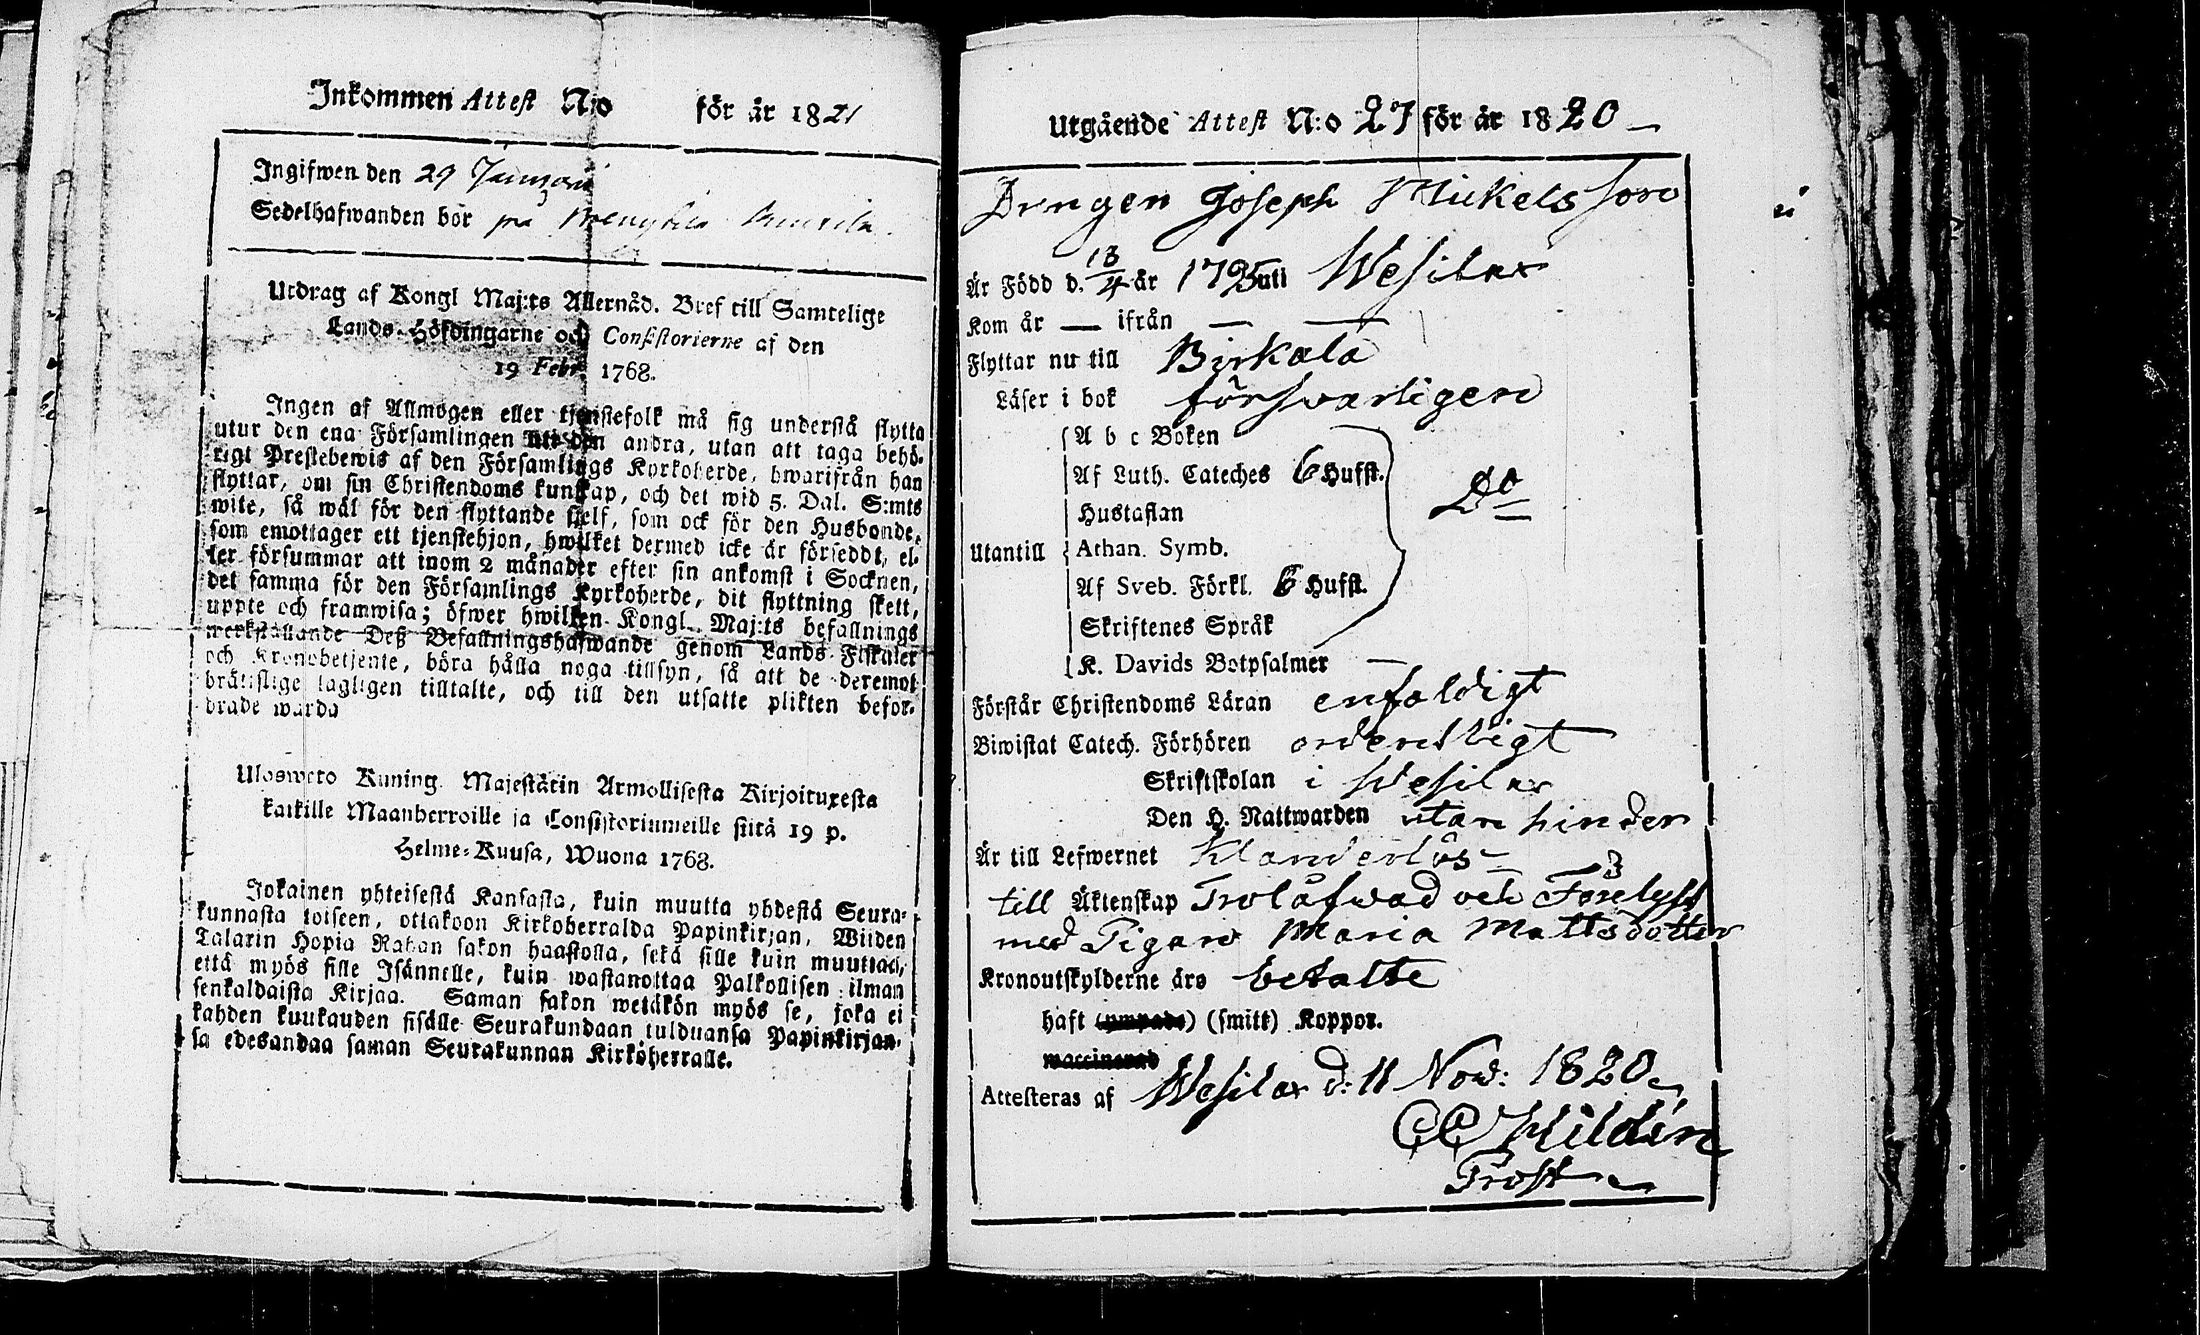 Inkommen Attest N:o för år 1821
Ingifwen den 29 Januari
Sedelhafwanden bör på
Utdrag af Kongl Maj:ts Allernåd. Bref till Samtelige
Lands-Höfdingarne och Consistorierne af den
19 Febr. 1768.
Ingen af Allmogen eller tjenstefolk må sig understå flytta
utur den ena Församlingen uti den andra, utan att taga behö-
rigt Prestebewis af den Församlings Kyrkoherde, hwarifrån han
flyttar, om sin Christendoms kunskap, och det wid 5. Dal. S:mts
wite, så wäl för den flyttande sjelf, som ock för den Husbonde,
som emottager ett tjenstehjon, hwilket dermed icke är förseddt, el-
ler försummar att inom 2 månader efter sin ankomst i Socknen,
det samma för den Församlings Kyrkoherde, dit flyttning skett,
uppte och framwisa; öfwer hwilken Kongl. Maj:ts befallnings
werkställande Deß Befallningshafwande genom Lands-Fiskaler
och Kronobetjente, böra hålla noga tillsyn, så att de deremot
brättslige lagligen tilltalte, och till den utsatte plikten befor-
drade warda
Ulosweto Kuning. Majestätin Armollisesta Kirjoituxesta
kaikille Maanherroille ja Consistoriumeille siitä 19 p.
Helme-Kuusa, Wuona 1768.
Jokainen yhteisestä Kansasta, kuin muutta yhdestä Seura-
kunnasta toiseen, ottakoon Kirkoherralda Papinkirjan, Wiiden
Talarin Hopia Rahan sakon haastolla, sekä sille kuin muuttaa,
että myös sille Isännelle, kuin wastanottaa Palkollisen ilman
senkaldaista Kirjaa. Saman sakon wetäkön myös se, joka ei
kahden kuukauden sisälle Seurakundaan tulduansa Papinkirjan-
sa edesandaa saman Seurakunnan Kirkoherralle.
Utgående Attest N:o 27 för år 1820
Drengen Joseph Mickelsson
Är Född d. 13/4 år 1795 uti Wesilax
Kom år — ifrån — —
Flyttar nu till Birkala
Läser i bok försvarligen
A b c Boken
Af Luth. Cateches 6 Hufst.
Hustaflan
Do
Utantill Athan. Symb.
Af Sveb. Förkl. 6 Hufst.
Skriftenes Språk
K. Davids Botpsalmer —
Förstår Christendoms Läran enfaldigt
Biwistat Catech. Förhören ordentligt
Skriftskolan i Wesilax
Den H. Nattwarden utan hinder
Är till Lefwernet Klanderlös
till Äktenskap Trolåfwad och 3 Förelyst
med Pigan Maria Mattsdotter
Kronoutskylderne äro betalte
haft (ympade) (smitt) Koppor.
waccinerad
Attesteras af Wesilax d: 11 Nov: 1820
CC Hildén
Prost